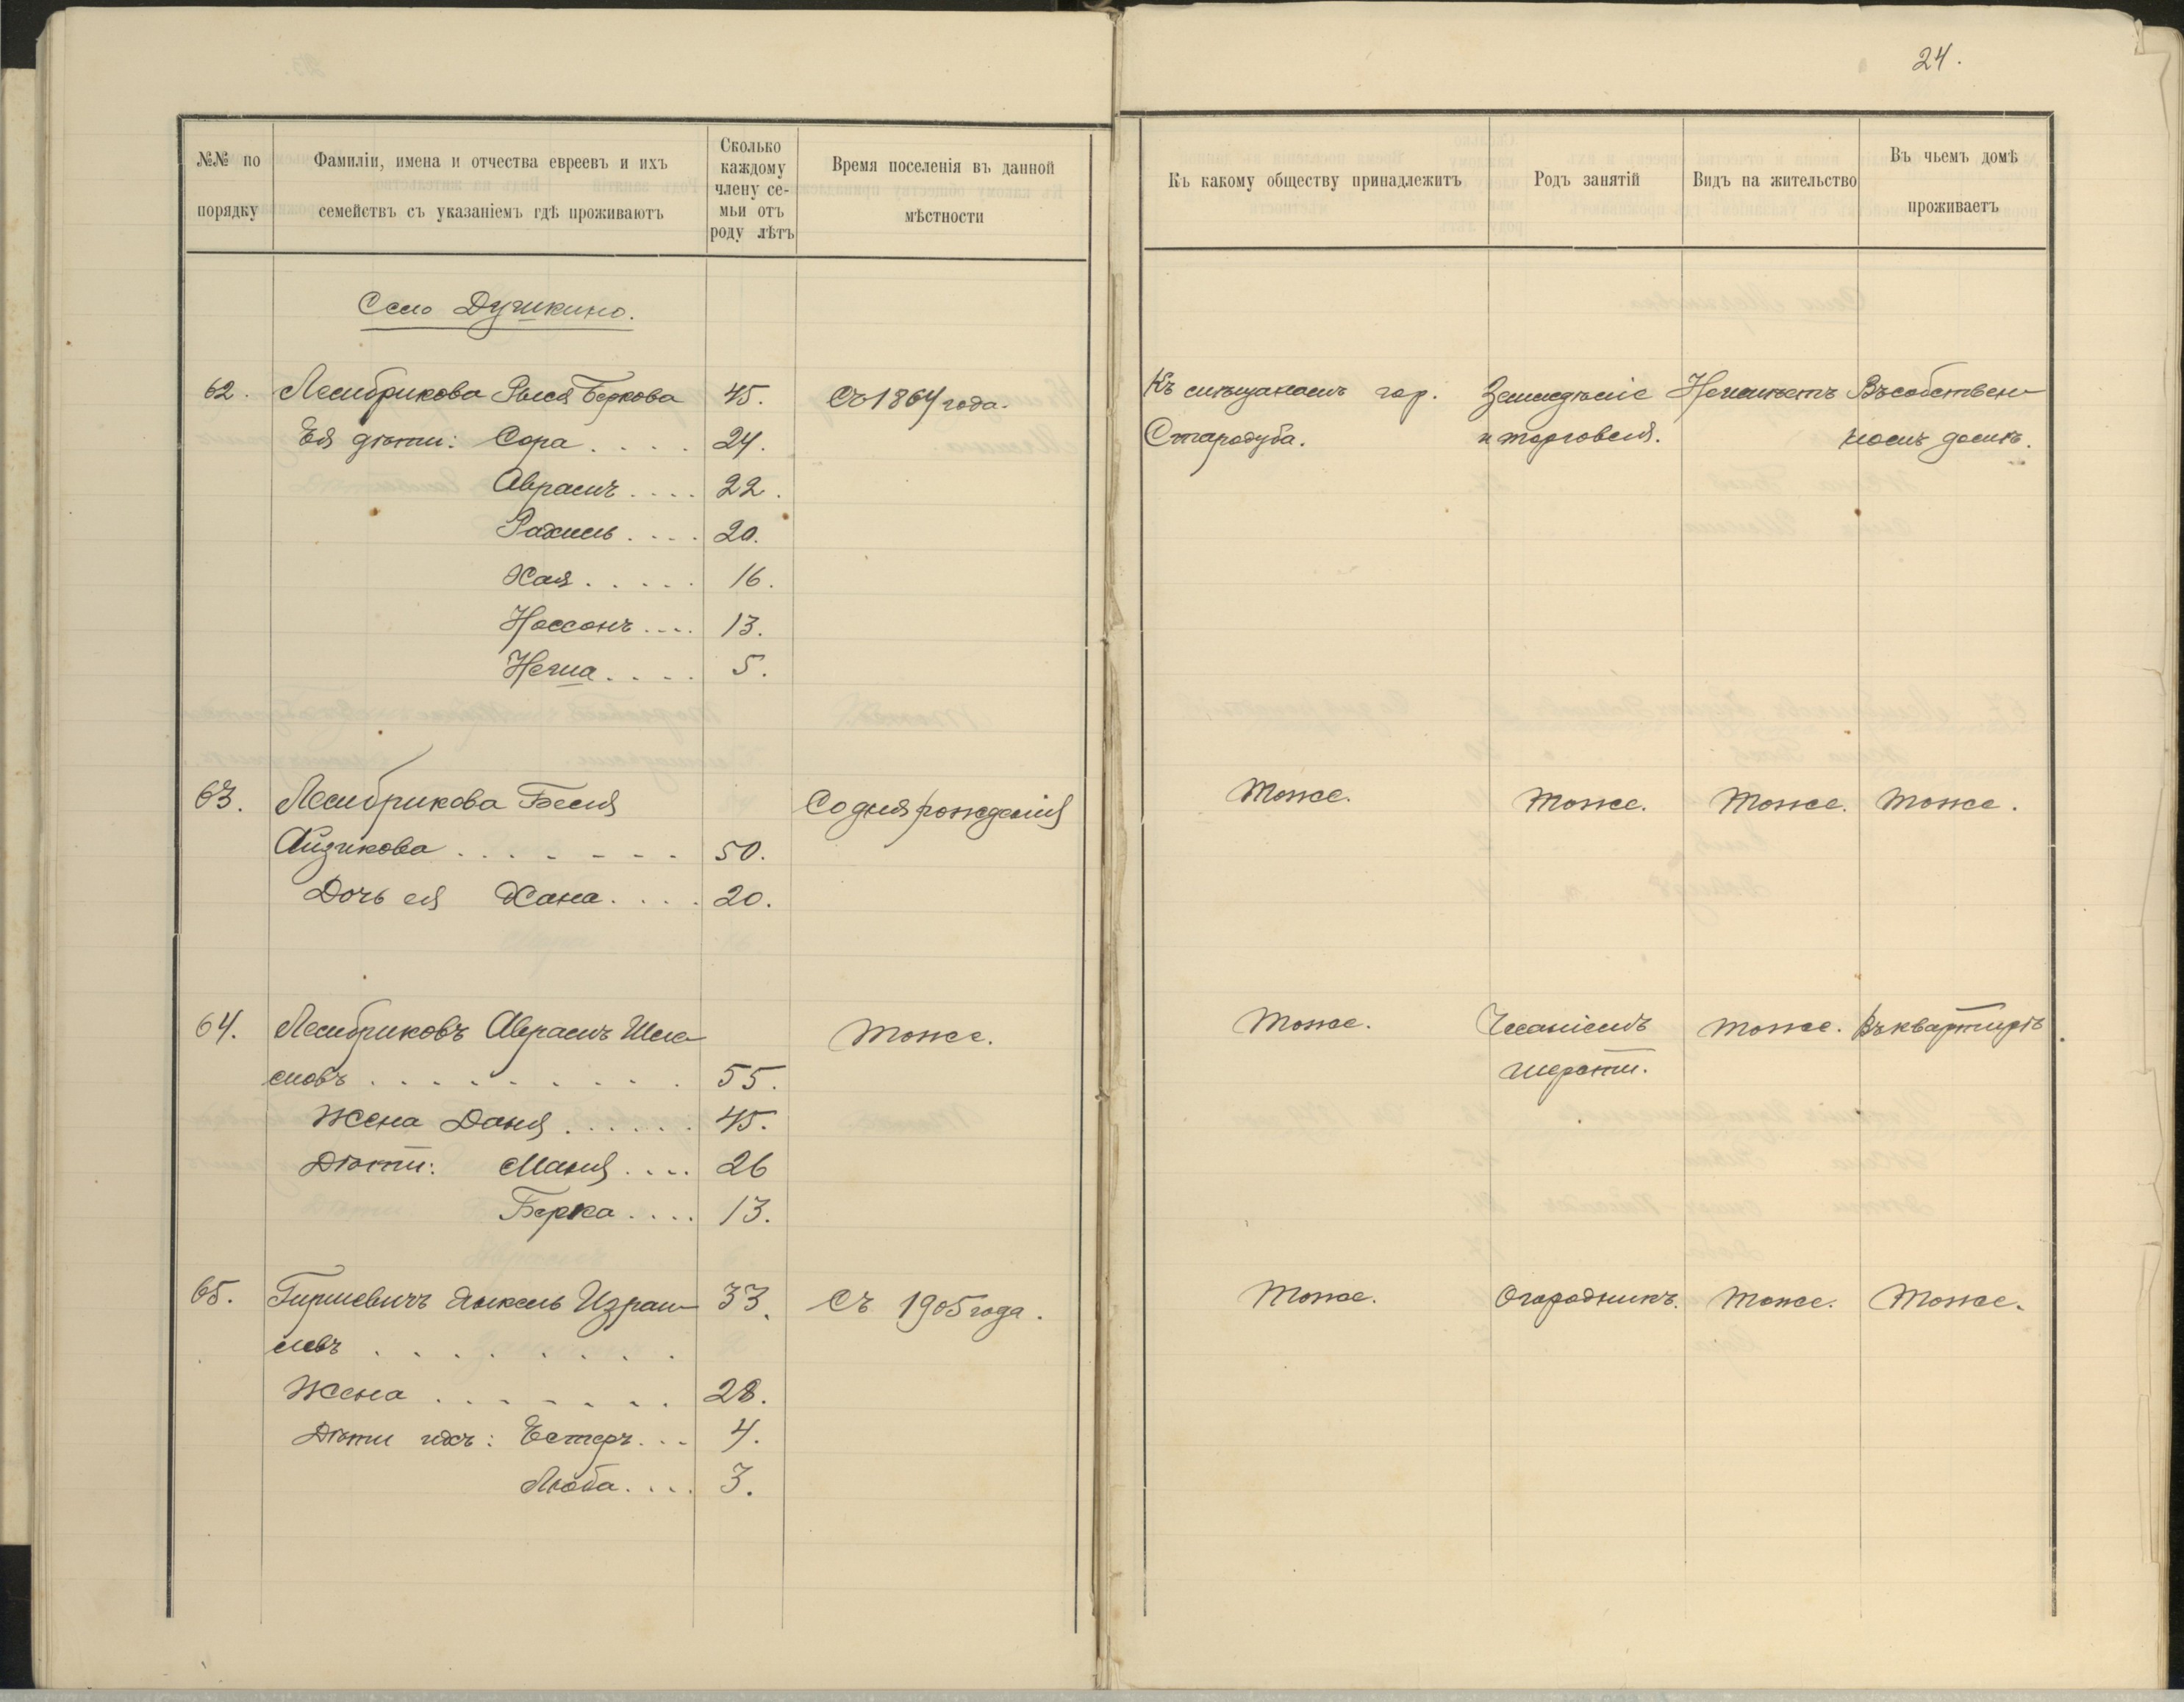 24.
№№ по
порядку
Фамиліи, имена и отчества евреевъ и ихъ
семействъ съ указаніемъ гдѣ проживаютъ
Сколько
каждому
члену се-
мьи отъ
роду лѣтъ
Время поселенія въ данной
мѣстности
Къ какому обществу принадлежитъ
Родъ занятій
Видъ на жительство
Въ чьемъ домѣ
проживаетъ
Село Душкино.
62. Лембрикова Рыся Беркова 45. Съ 1864 года. Къ мѣщанамъ гор. Земледѣліе Неимѣетъ Въ собствен-
Ея дѣти: Сора .... 24. Стародуба. и торговля. номъ домѣ.
Аврамъ .... 22.
Рахиль .... 20.
Хая ..... 16.
Носсонъ .... 13.
Неша .... 5.
63. Лембрикова Бейля Со дня рожденія Тоже. Тоже. Тоже. Тоже.
Айзикова ....... 50.
Дочь ея Хана .... 20.
64. Лембриковъ Аврамъ Шле- Тоже. Тоже. Чесаніемъ Тоже. Въ квартирѣ
мовъ ......... 55. шерсти.
Жена Даня ...... 45.
Дѣти: Маня .... 26
Берка .... 13.
65. Гиршевичъ Янкель Израи- 33. Съ 1905 года. Тоже. Огородникъ. Тоже. Тоже.
левъ ........
Жена ....... 28.
Дѣти ихъ: Естеръ ... 4.
Люба .... 3.